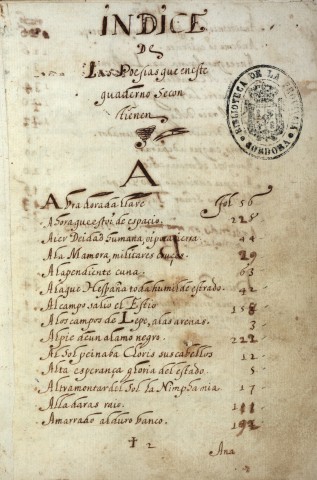 INDICE
DE
Las Poesias que en este
quaderno Se con
tienen
A
Abra dorada llave fol 56
Ahora que estoi de espacio. 228
Aier Deidad humana, oi poca tierra. 44
A la Mamora, militares cruçes. 29
A la pendiente cuna. 63
A la que Hespaña toda humilde estrado. 42
Al campo salio el Estio 158
A los campos de Lepe, a las arenas. 3
Al pie de un alamo negro. 222
Al Sol peinaba Cloris sus cabellos 12
Alta esperança gloria del estado. 5
Al tramontar del Sol la Nimpha mia 17
Alla daras raio. 111
Amarrado al duro banco. 192
2
Ana
BIBLIOTECA DE LA
CORDOBA